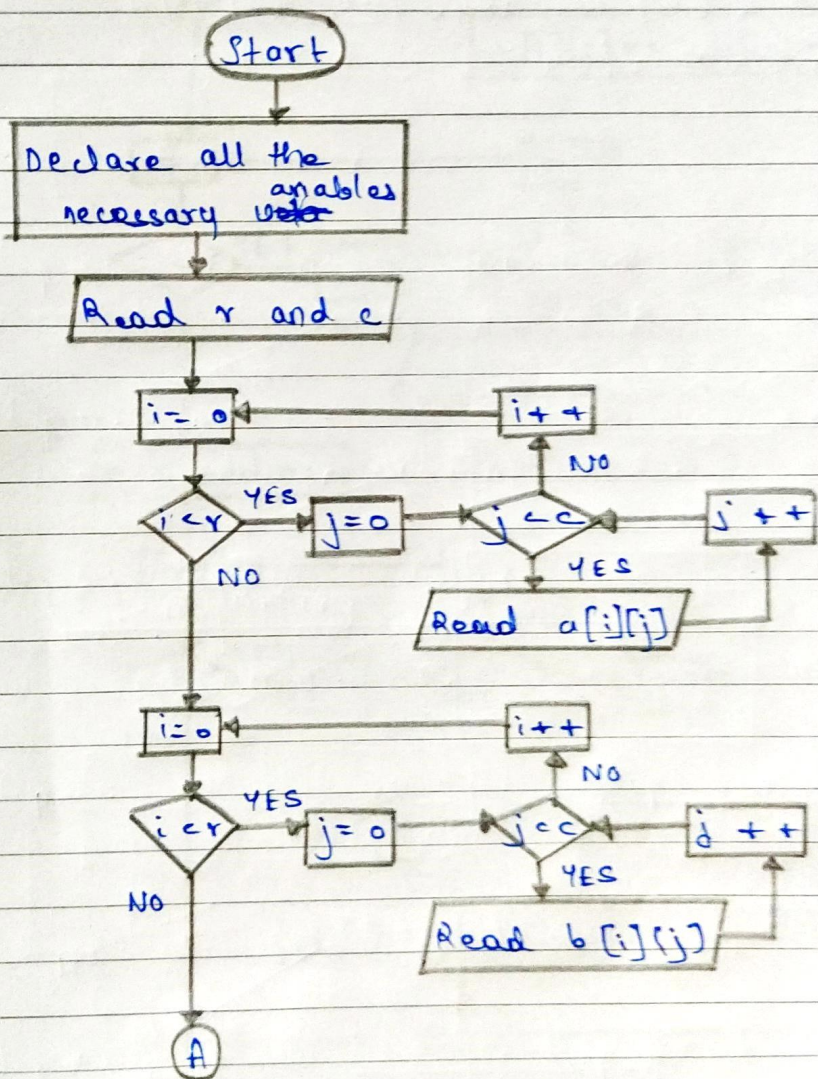 Start
Declare all the
necessary variables
Read r and c
i = 0
i + +
NO
i < r
YES
j = 0
j < c
j + +
NO
YES
Read a[i][j]
i = 0
i + +
NO
i < r
YES
j = 0
j < c
j + +
YES
NO
Read b[i][j]
A